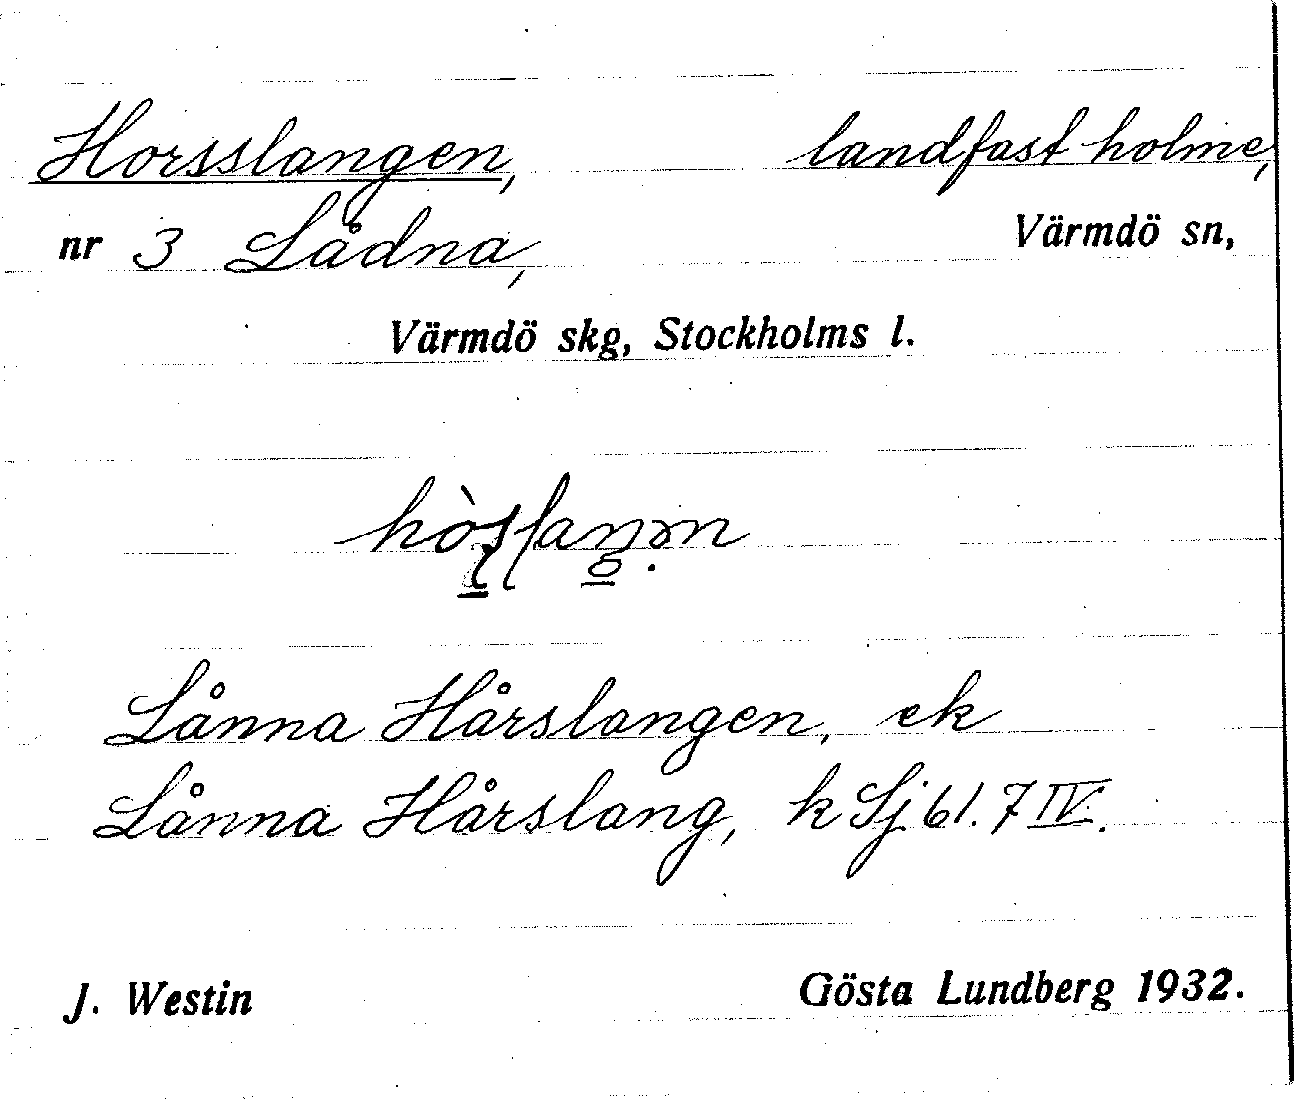 Horsslangen, landfast holme,
nr 3 Lådna, Värmdö sn,
Värmdö skg, Stockholms l.
Lånna Hårslangen, ek
Lånna Hårslang, k Sj bl. 7 IV.
J. Westin Gösta Lundberg 1932.